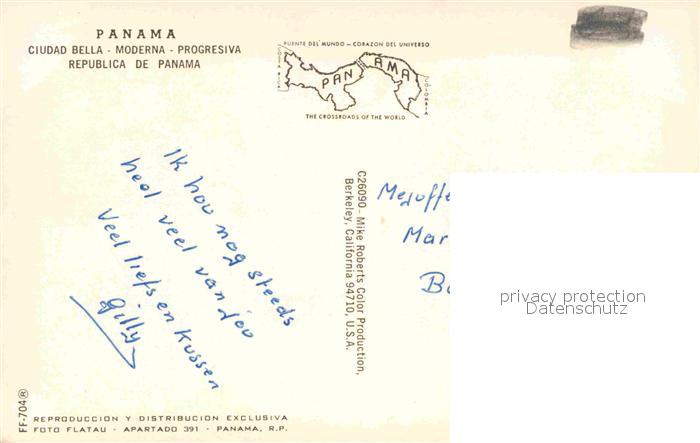 PANAMA
CIUDAD BELLA - MODERNA - PROGRESIVA
REPUBLICA DE PANAMA
PUENTE DEL MUNDO - CORAZON DEL UNIVERSO
COSTA RICA
PANAMA
COLOMBIA
THE CROSSROADS OF THE WORLD
Ik hou nog steeds
heel veel van jou
Veel liefs en Kussen
Gilly
C26090 - Mike Roberts Color Production,
Berkeley, California 94710, U.S.A.
Mejuffe
Mar
privacy protection
Datenschutz
FF-704®
REPRODUCCION Y DISTRIBUCION EXCLUSIVA
FOTO FLATAU - APARTADO 391 - PANAMA, R.P.